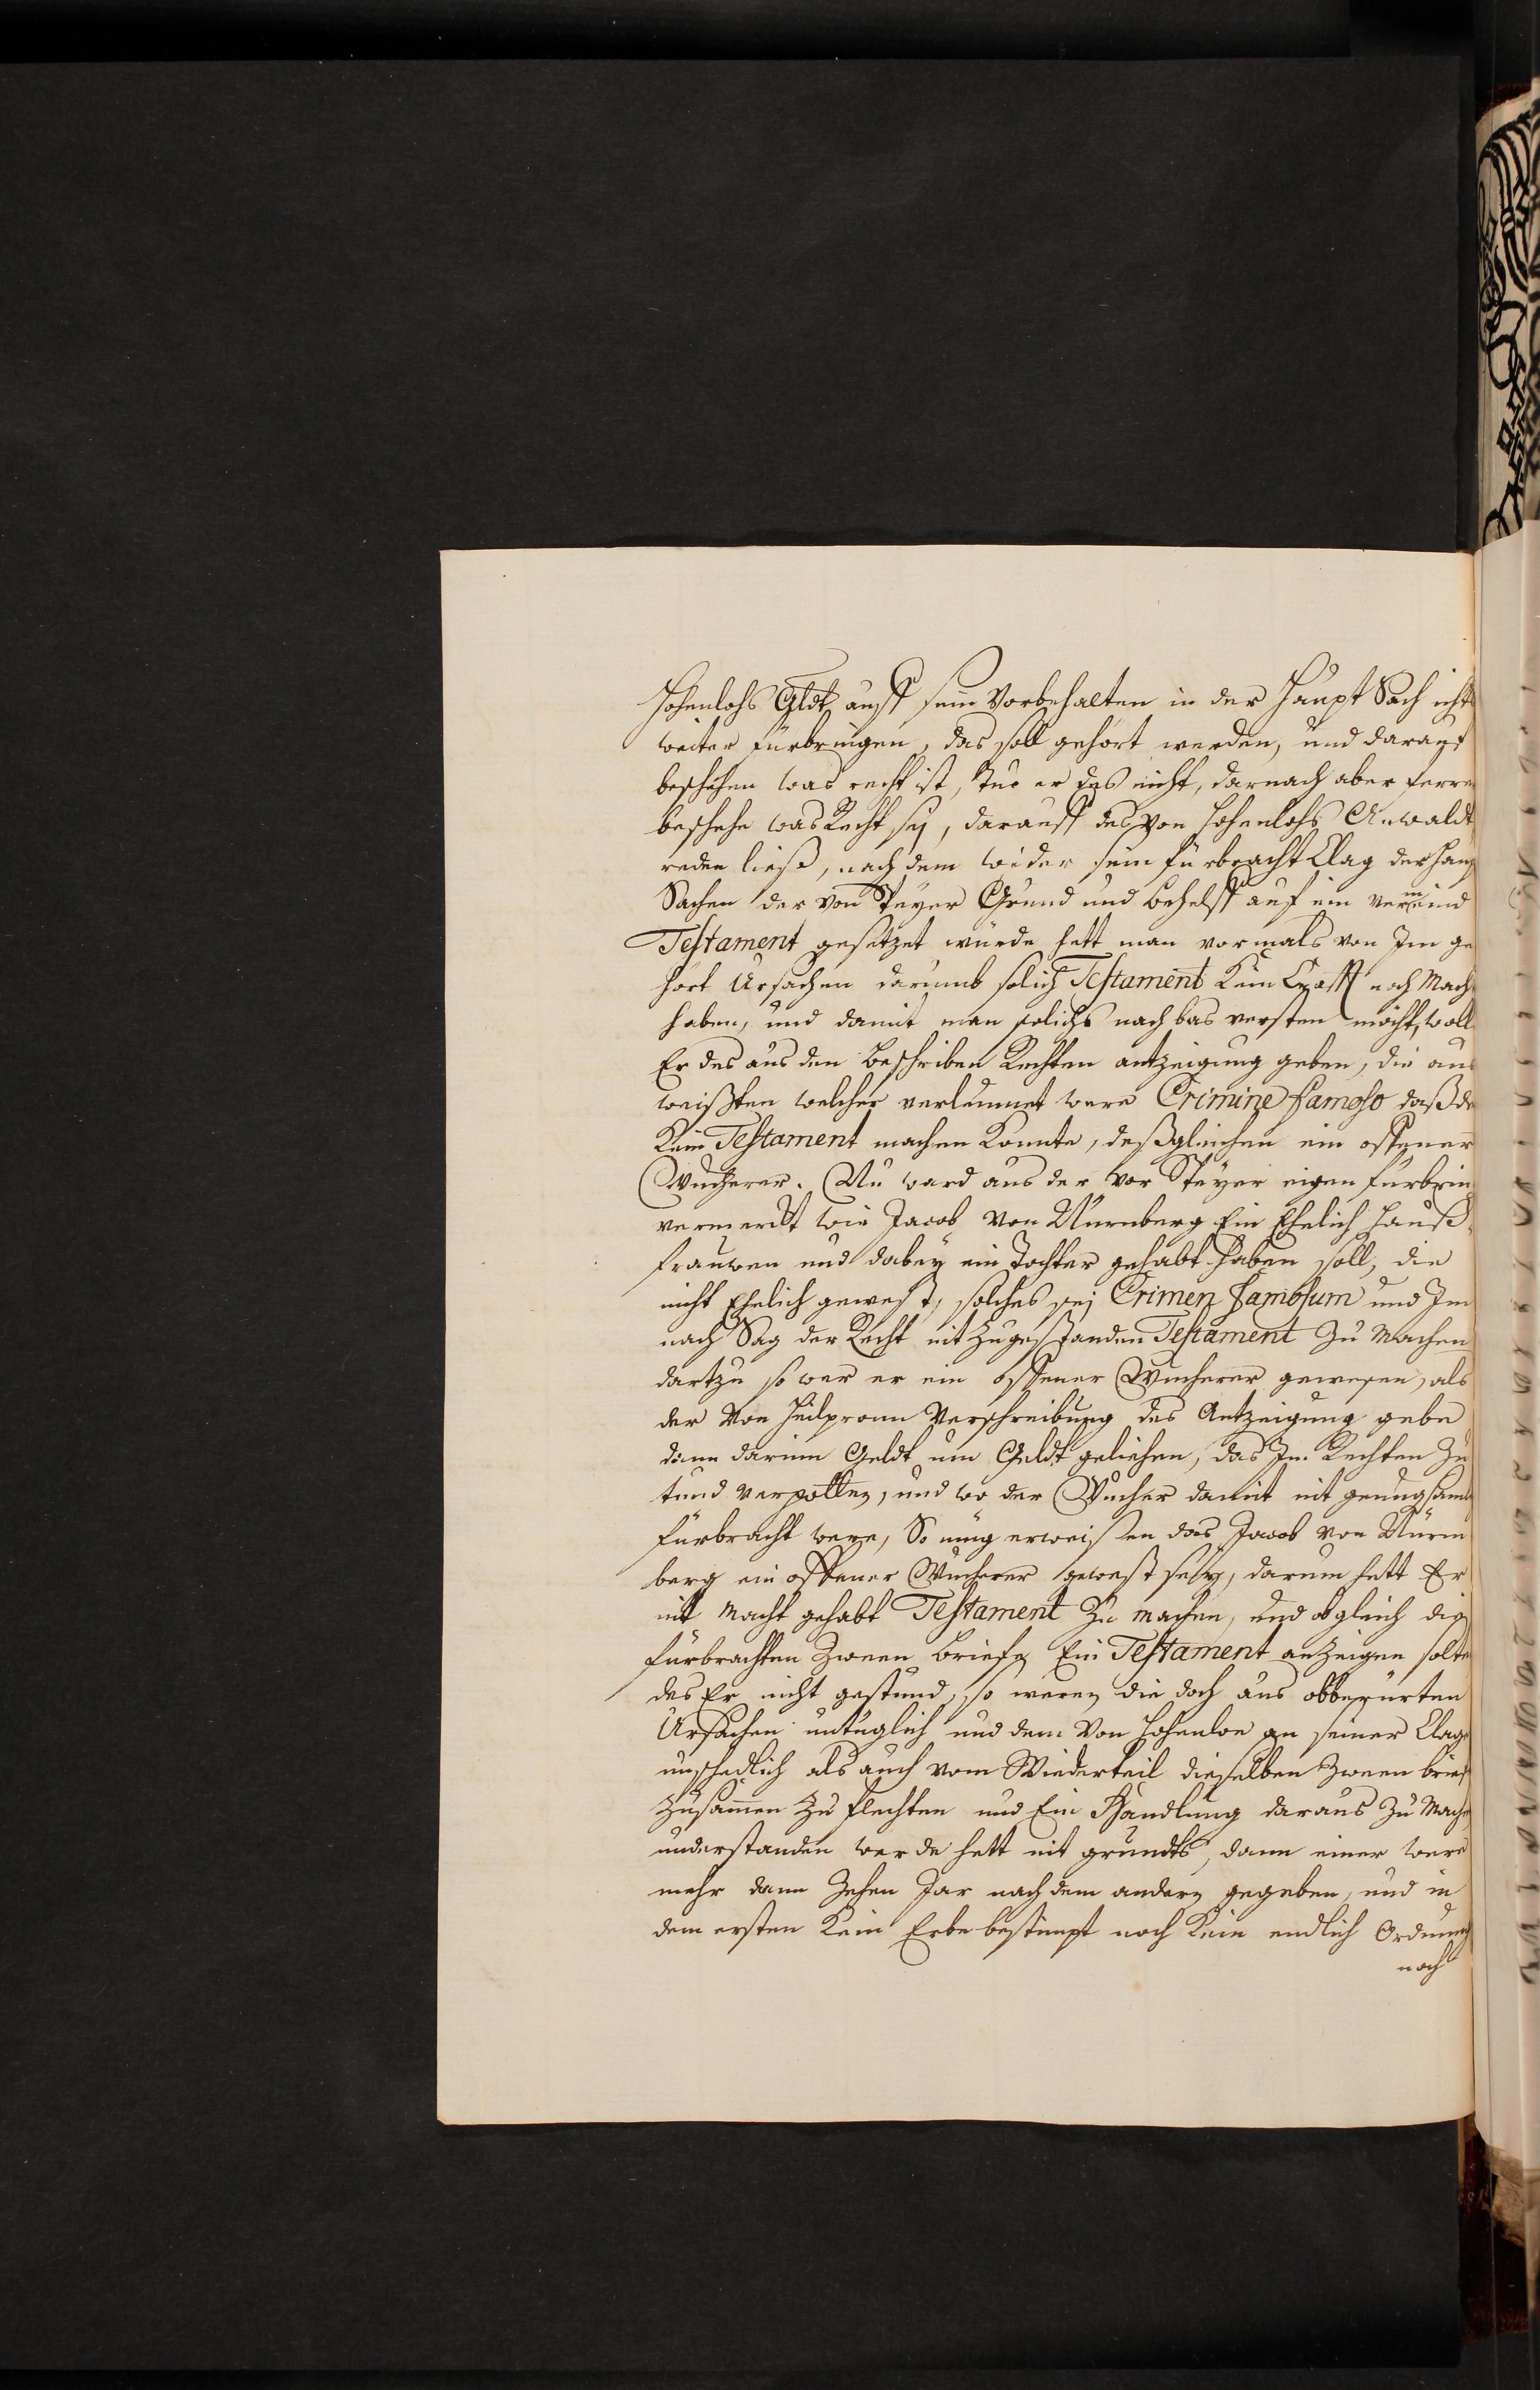 Hohenlohs Gldt auff sein Vorbehalten in der Haupt Sach ichts
weiter fürbringen, das soll gehört werden, und darauf
beschehen was recht ist, Tue er das nicht, darnach aber ferre
beschehe was Recht sej, darauff des von Hohenlohs Anwaldt
reden ließ, nach dem wider sein fürbracht Clag der Haup
Sachen der von Speyer Grund und behelff auf ein vermeind
Testament gesetzet würde hett man vormals von Im ge
hört Ursachen darumb solich Testament Kein Crafft noch Macht
haben, und damit man solichs nach bas versten möcht, woll
Er des aus den Beschriben Rechten antzeigung geben, die aus
weißten welcher verleumet were Crimine famoso daß de
Kein Testament machen Konnte, deßgleichen ein offener
Wucherer. Nu ward aus der vor Speyer eigen fürbring
vermerckt wie Jacob von Nürnberg Ein Ehelich Hauß
frauwen und dabey ein Tochter gehabt haben soll, die
nicht Ehelich gewest, solches sej Crimen famosum und Im
nach Sag der Recht nit zugestanden Testament zu Machen
dartzu so wer er ein offener Wucherer gewesen, als
der von Heilpronn Verschreibung des Antzeigung gebe
dann darinn Geldt um Geldt geliehen, das Im Rechten zu
tund verpotten, und wo der Wucher damit nit genugsamb
fürbracht were, So müg erweisen das Jacob von Nürm
berg ein offener Wucherer gewest sey, darum hett Er
nit Macht gehabt Testament zu machen, und ob gleich die
fürbrachten Zween Briefe Ein Testament anzeigen solten
des Er nicht gestund, so weren die doch aus obberürten
Ursachen untüglich und dem von Hohenloe an seiner Clage
unschedlich als auch vom Wiederteil dieselben Zween brief
Zusammen zu flechten und Ein Handlung daraus zu Mache
understanden werde hett nit grundts, dann einer were
mehr dann Zehen Jar nach dem andern gegeben, und in
dem ersten Kein Erbe bestimpt noch Kein endlich Ordnung
noch